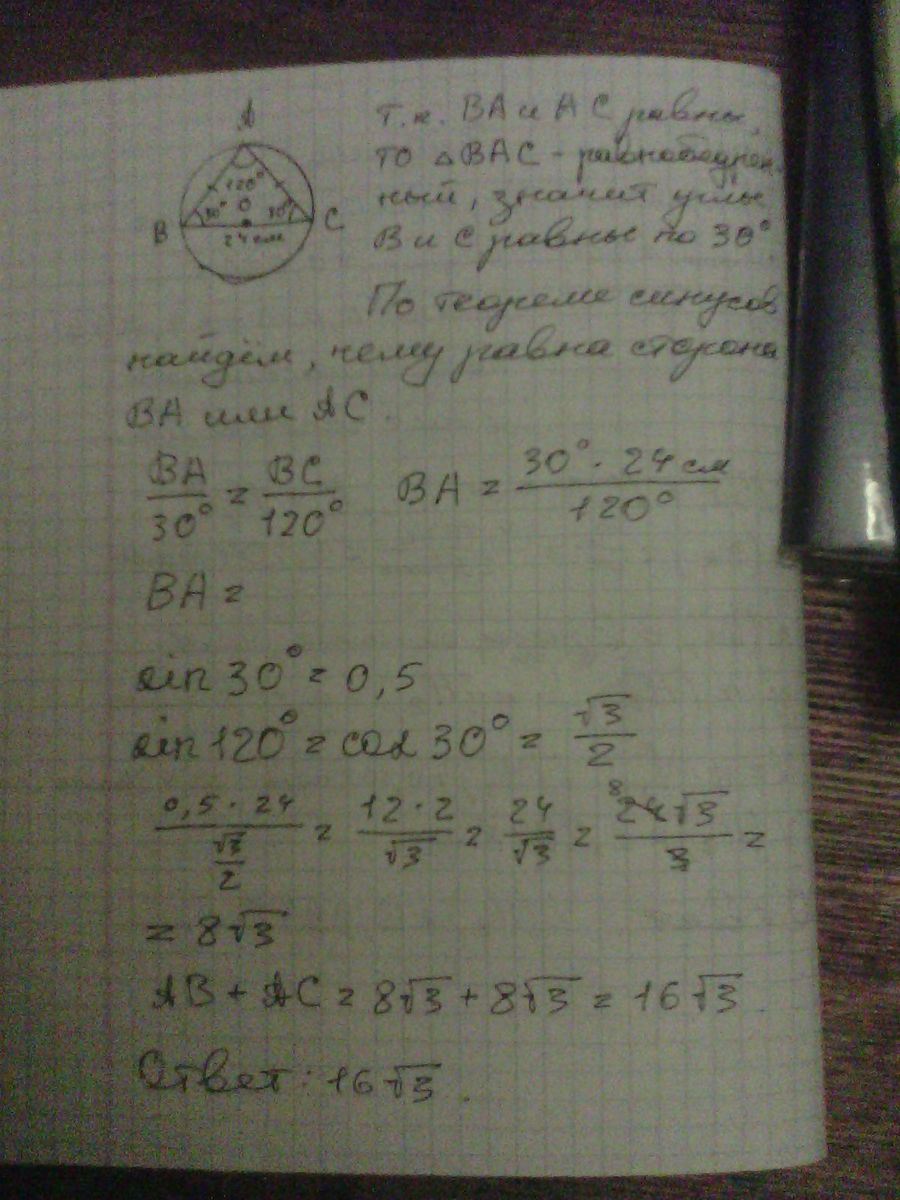 A
120°
30° O 30°
B C
24 см
т.к. BA и AC равны,
то △BAC - равнобедрен-
ный, значит углы
B и C равны по 30°
По теореме синусов
найдём, чему равна сторона
BA или AC.
BA/30° = BC/120° BA = 30° · 24 см/120°
BA =
sin 30° = 0,5
sin 120° = cos 30° = √3/2
0,5 · 24/(√3/2) = 12 · 2/√3 = 24/√3 = 8 24√3/3 =
= 8√3
AB + AC = 8√3 + 8√3 = 16√3
Ответ: 16√3.